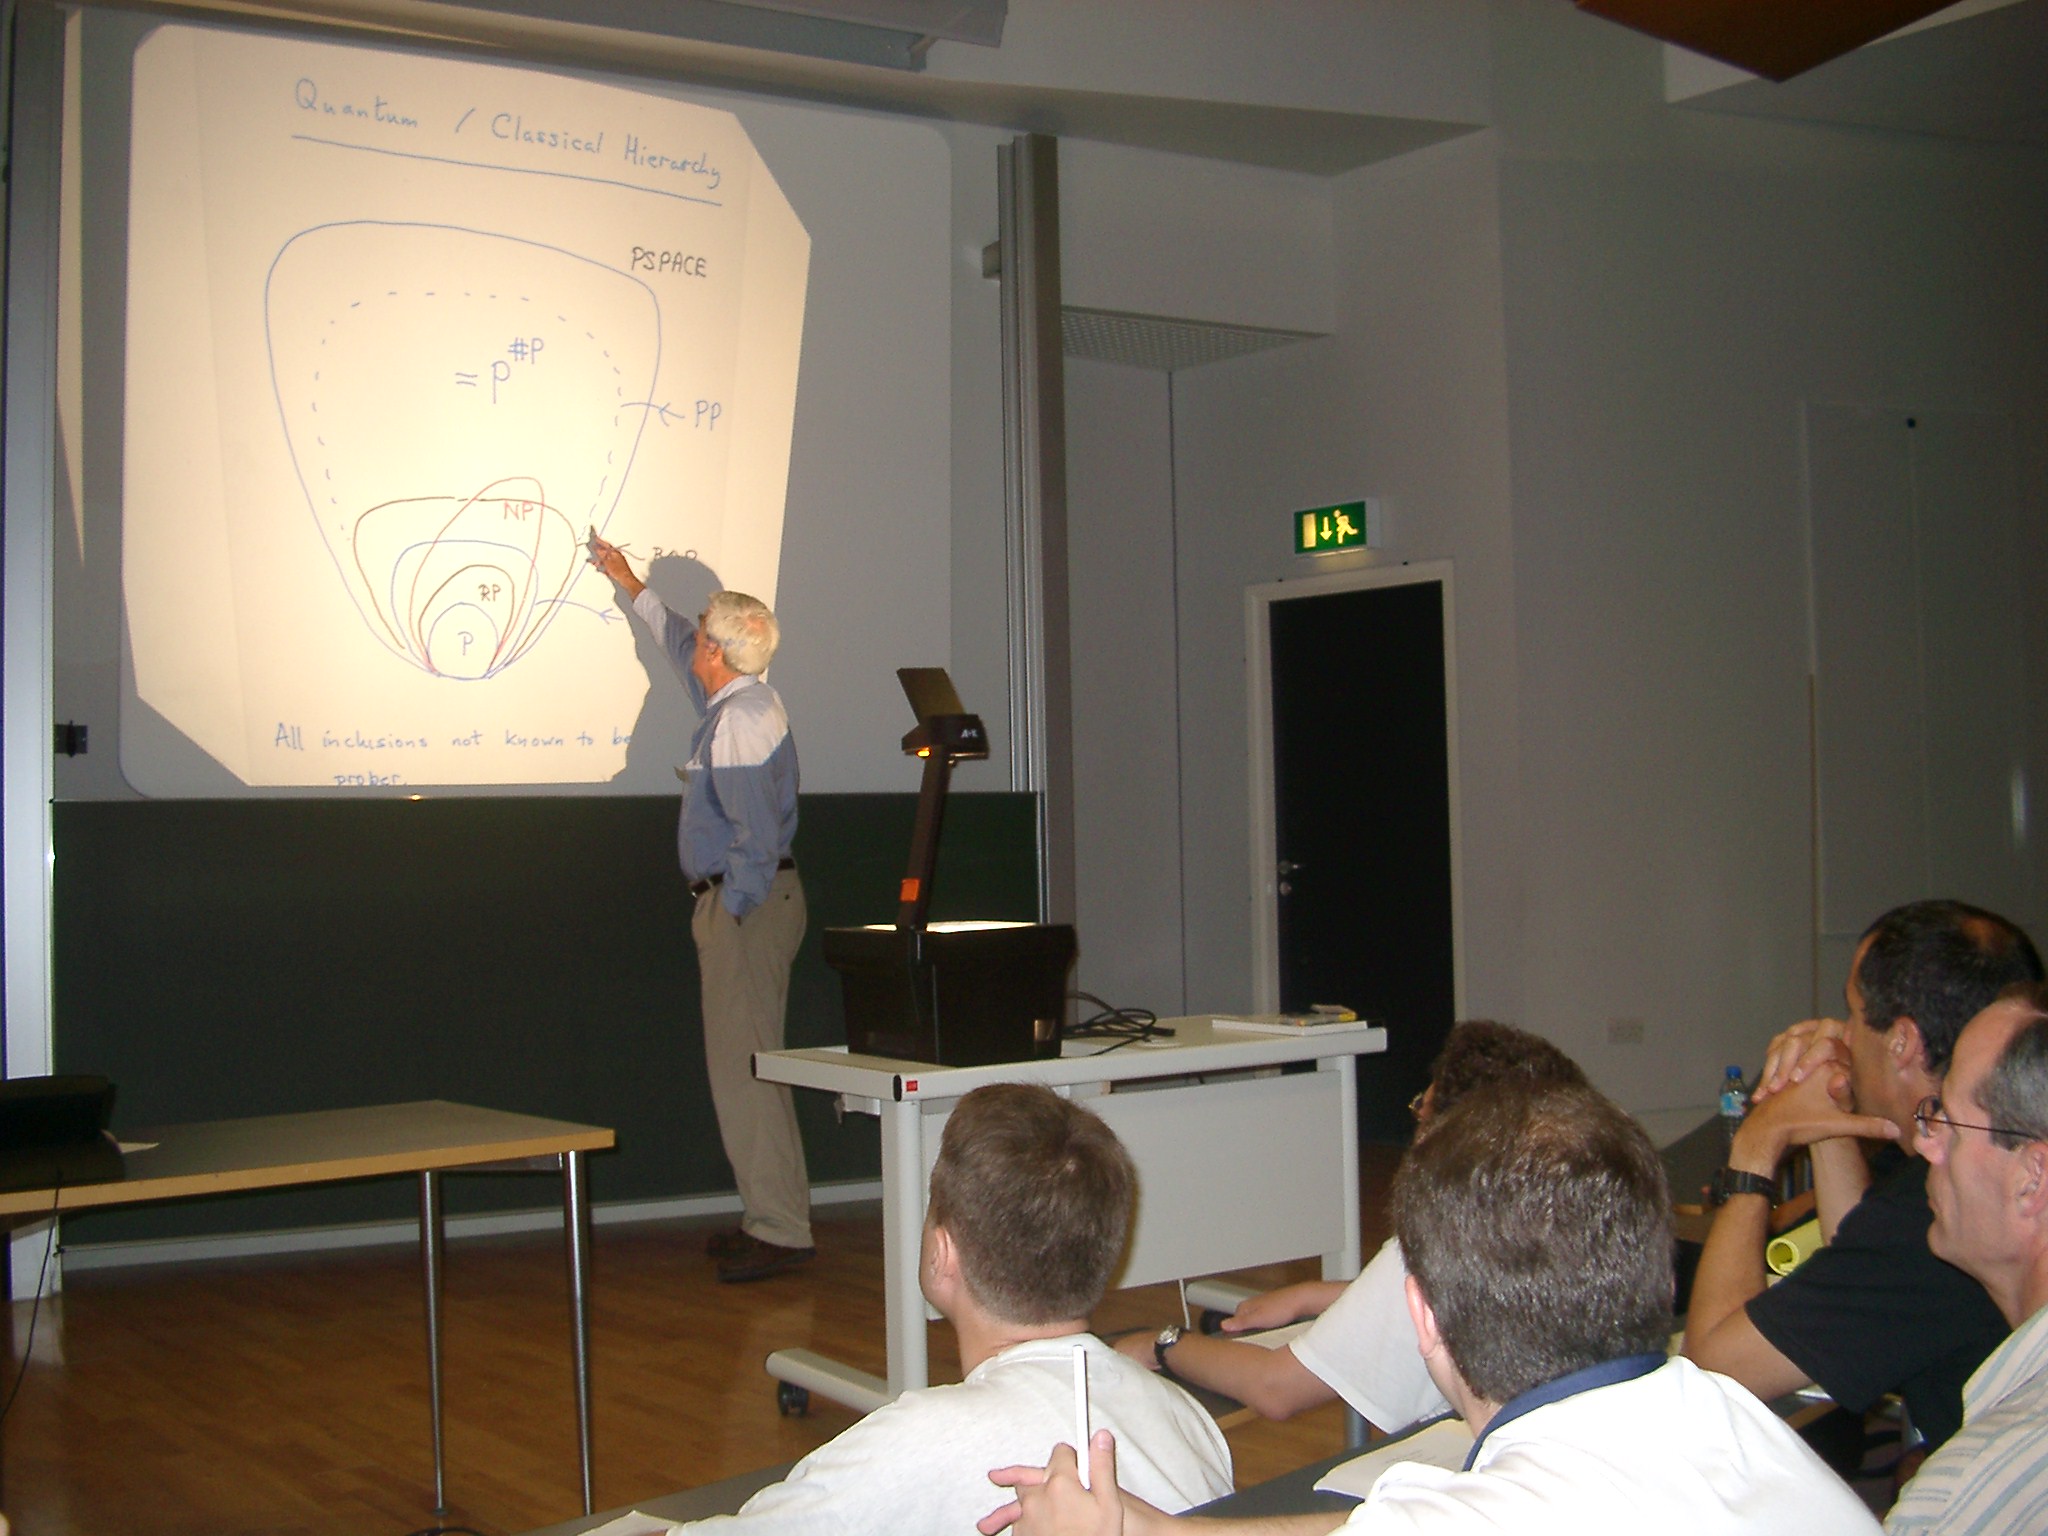 Quantum / Classical Hierarchy
PSPACE
= P^#P
PP
NP
RP
P
All inclusions not known to be
proper.